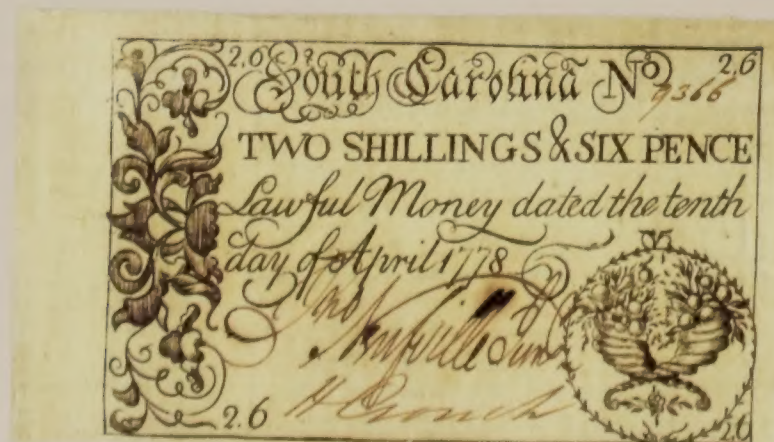 2.6 South Carolina No 9366 2.6
TWO SHILLINGS & SIX PENCE
Lawful Money dated the tenth
day of April 1778
Jno
Neufville Junr
H Crouch
2.6 2.6